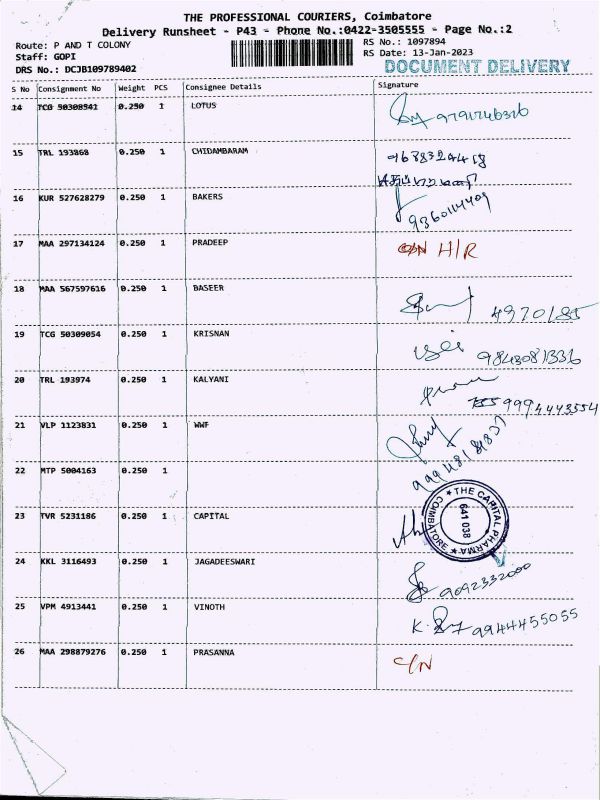 THE PROFESSIONAL COURIERS, Coimbatore
Delivery Runsheet - P43 - Phone No.:0422-3505555 - Page No.:2
Route: P AND T COLONY
Staff: GOPI
DRS No.: DCJB109789402
RS No.: 1097894
RS Date: 13-Jan-2023
DOCUMENT DELIVERY
S No Consignment No Weight PCS Consignee Details Signature
14 TCG 50308541 0.250 1 LOTUS
15 TRL 193868 0.250 1 CHIDAMBARAM
16 KUR 527628279 0.250 1 BAKERS
17 MAA 297134124 0.250 1 PRADEEP H/R
18 MAA 567597616 0.250 1 BASEER
19 TCG 50309054 0.250 1 KRISNAN 9843081336
20 TRL 193974 0.250 1 KALYANI 9994443554
21 VLP 1123831 0.250 1 WWF
22 MTP 5004163 0.250 1
23 TVR 5231186 0.250 1 CAPITAL
THE CAPITAL PHARMA
COIMBATORE
641 038
24 KKL 3116493 0.250 1 JAGADEESWARI 9092332000
25 VPM 4913441 0.250 1 VINOTH 9944455055
26 MAA 298879276 0.250 1 PRASANNA C/N